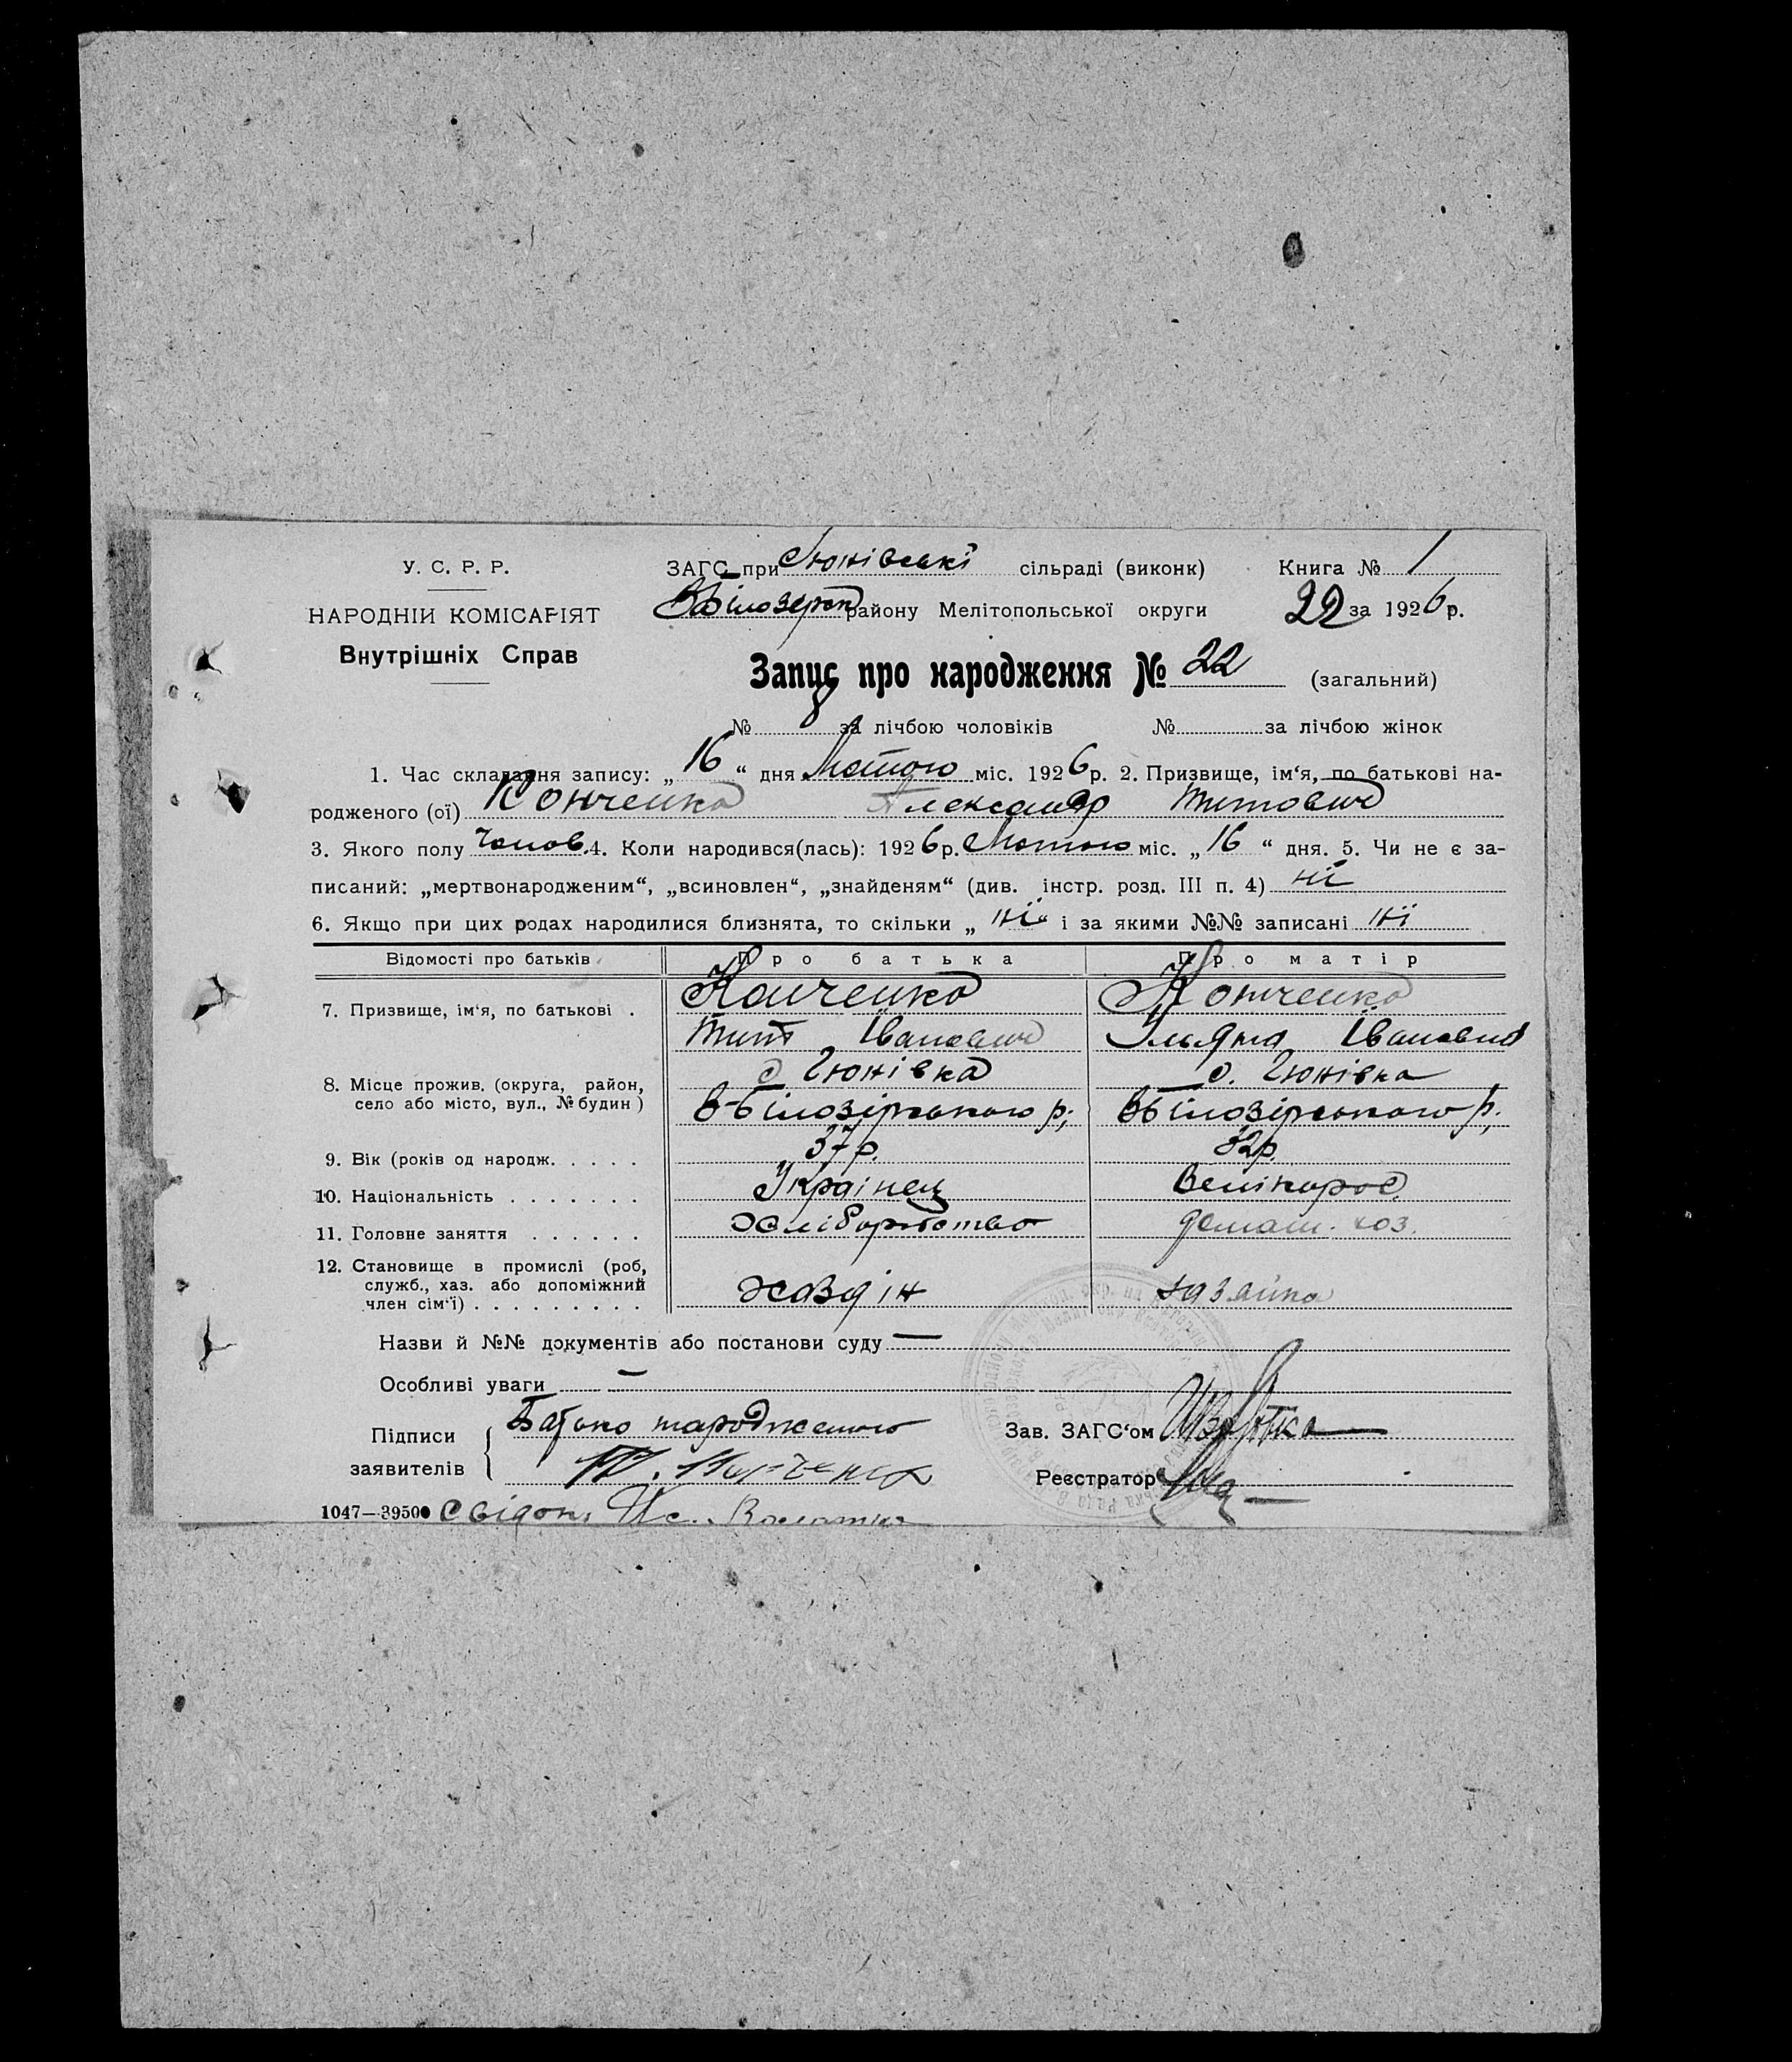 У. С. Р. Р.
НАРОДНІЙ КОМІСАРІЯТ
Внутрішніх Справ
ЗАГС при Гюнівські сільраді (виконк) Книга № 1
ВБілозерск району Мелітопольської округи 22 за 1926 р.
Запис про народження № 22 (загальний)
№ 8 за лічбою чоловіків № за лічбою жінок
1. Час складання запису: „16“ дня Лютого міс. 1926 р. 2. Призвище, ім‘я, по батькові на-
родженого (ої) Конченко Александр Титович
3. Якого полу Чолов. 4. Коли народився(лась): 1926 р. Лютого міс. „16“ дня. 5. Чи не є за-
писаний: „мертвонародженим“, „всиновлен“, „знайденям“ (див. інстр. розд. III п. 4) ні
6. Якщо при цих родах народилися близнята, то скільки „ні“ і за якими №№ записані ні
Відомості про батьків Про батька Про матір
7. Призвище, ім‘я, по батькові . Конченко Конченко
Тит Іванович Ульяна Івановна
8. Місце прожив. (округа, район, село або місто, вул., № будин) с. Гюнівка с. Гюнівка
В-Білозірського р; ВБілозірського р;
9. Вік (років од народж. . . . . 37 р. 32 р.
10. Національність . . . . . . . Українец Велікорос
11. Головне заняття . . . . . . хліборобство домаш. хоз.
12. Становище в промислі (роб, служб., хаз. або допоміжний член сім‘ї) . . . . . . . . . хазяін хазайка
Назви й №№ документів або постанови суду —
Особливі уваги —
Підписи заявителів Батько народженого
Т. Конченко
Зав. ЗАГС‘ом
Реєстратор
1047—39500 Свідок